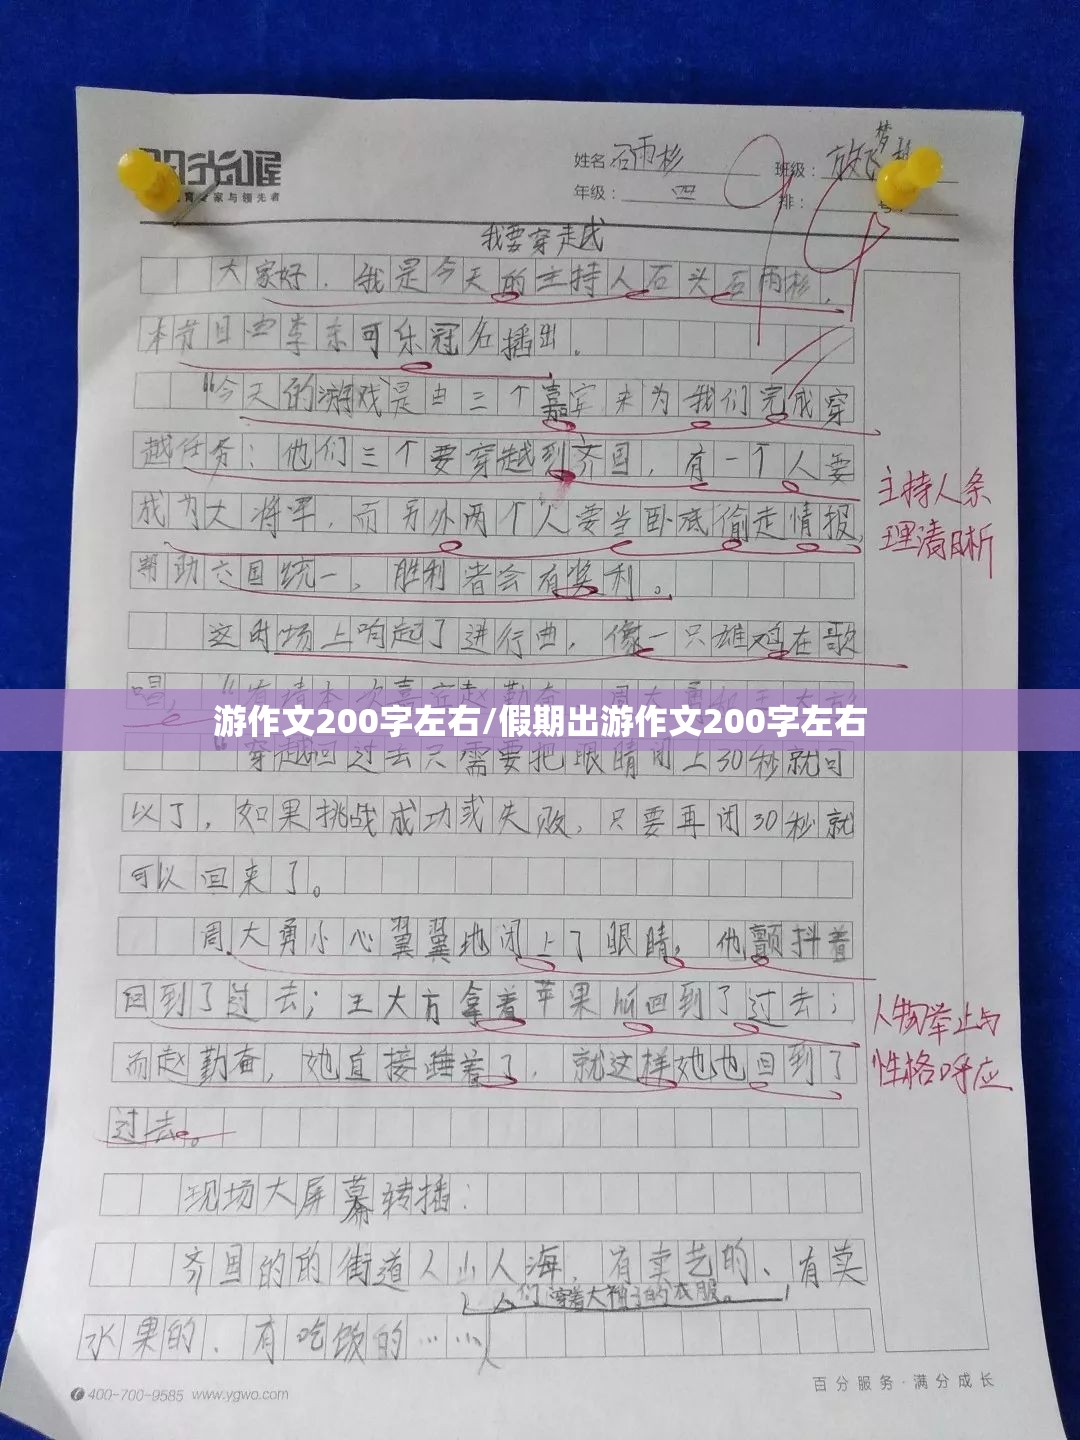 阳光喔
教育专家与领先者
姓名 石雨杉 班级: 放飞梦想
年级: 四 排: 号:
99
我要穿走戉
大家好，我是今天的主持人石头石雨杉，
本节目由李东可乐冠名播出。
“今天的游戏是由三个嘉宾来为我们完成穿
越任务：他们三个要穿越到齐国，有一个人要
成为大将军，而另外两个人要当卧底偷走情报，
帮助六国统一，胜利者会有奖利。
主持人条
理清日析
这时场上响起了进行曲，像一只雄鸡在歌
唱，
游作文200字左右/假期出游作文200字左右
“穿越回过去只需要把眼睛闭上30秒就可
以了，如果挑战成功或失败，只要再闭30秒就
可以回来了。
周大勇小心翼翼地闭上了眼睛，他颤抖着
回到了过去；王大方拿着苹果 回到了过去；
而赵勤奋，她直接睡着了，就这样她也回到了
过去。
人物举止与
性格呼应
现场大屏幕转播：
齐国的的街道人山人海，有卖艺的、有卖
人们穿着大袖子的衣服。
水果的、有吃饭的……
400-700-9585 www.ygwo.com
百分服务·满分成长